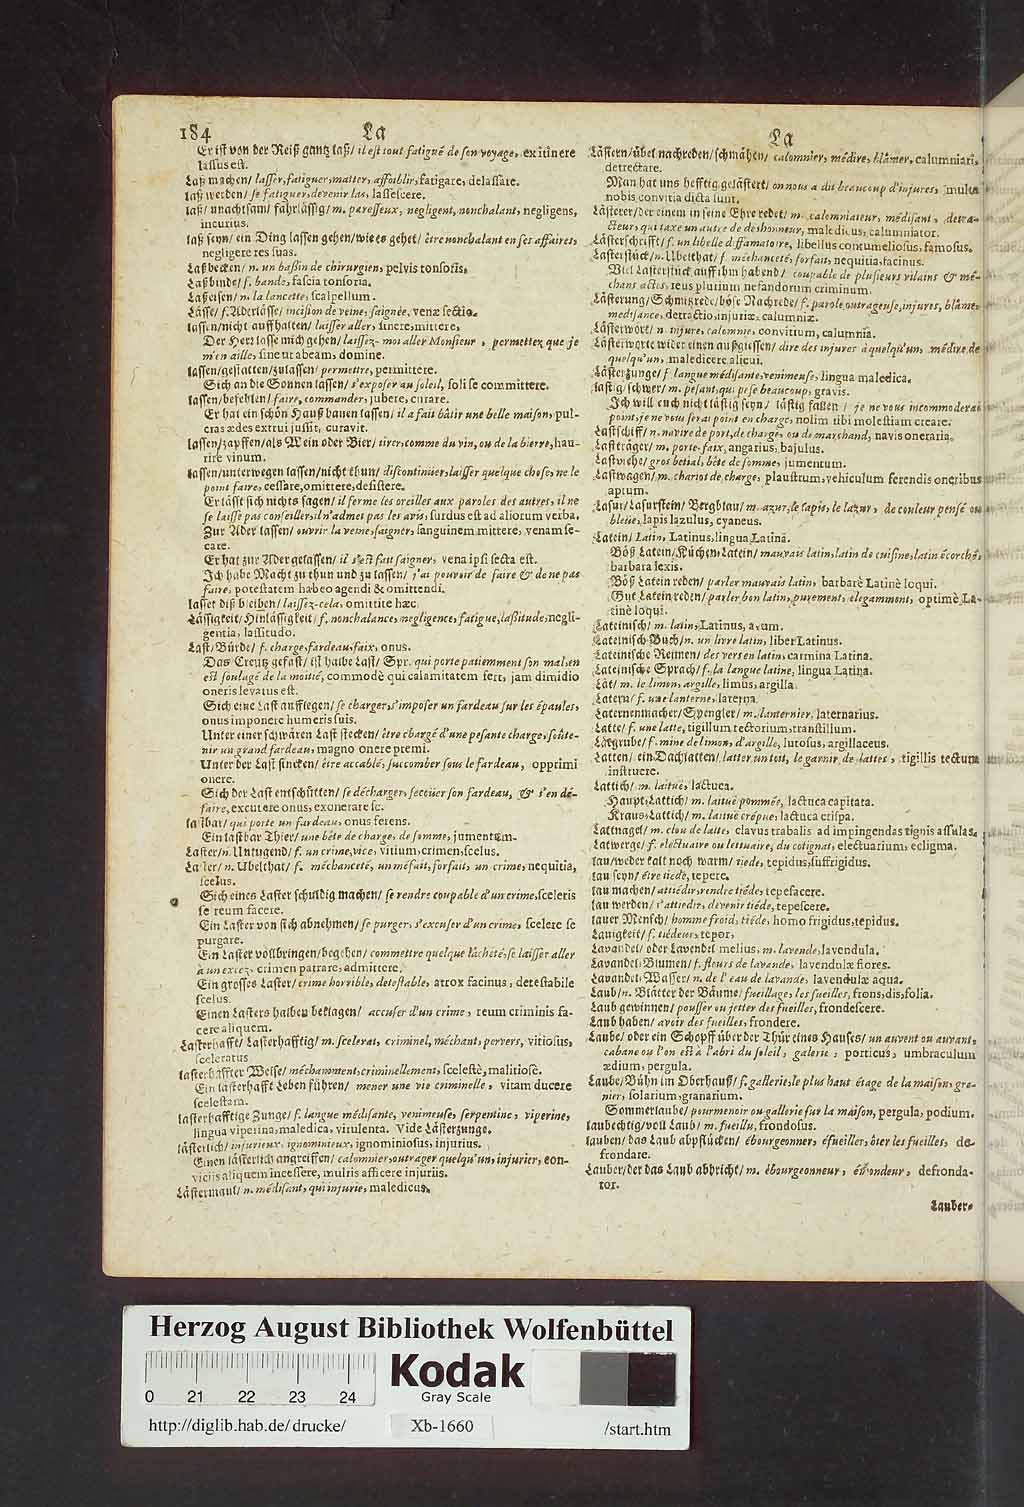 184 La
Er ist von der Reiß gantz laß/ il est tout fatigué de son voyage, ex itinere
lassus est.
Laß machen/ lasser, fatiguer, matter, affoiblir, fatigare, delassare.
laß werden/ se fatiguer, devenir las, lassescere.
laß/ unachtsam/ fahrlässig/ m. paresseux, negligent, nonchalant, negligens,
incurius.
laß seyn/ ein Ding lassen gehen/ wie es gehet/ être nonchalant en ses affaires,
negligere res suas.
Laßbecken/ n. un bassin de chirurgien, pelvis tonsoris.
Laßbinde/ f. bande, fascia tonsoria.
Laßeisen/ n. la lancette, scalpellum.
Lässe/ f. Aderlässe/ incision de veine, saignée, venæ sectio.
lassen/ nicht auffhalten/ laisser aller, sinere, mittere,
Der Herr lasse mich gehen/ laissez-moi aller Monsieur, permettez que je
m'en aille, sine ut abeam, domine.
lassen/ gestatten/ zulassen/ permettre, permittere.
Sich an die Sonnen lassen/ s'exposer au soleil, soli se committere.
lassen/ befehlen/ faire, commander, jubere, curare.
Er hat ein schön Hauß bauen lassen/ il a fait bâtir une belle maison, pul-
cras ædes extrui jussit, curavit.
lassen/ zapffen/ als Wein oder Bier/ tirer, comme du vin, ou de la bierre, hau-
rire vinum.
lassen/ unterwegen lassen/ nicht thun/ discontinier, laisser quelque chose, ne le
point faire, cessare, omittere, desistere.
Er lässt sich nichts sagen/ il ferme les oreilles aux paroles des autres, il ne
se laisse pas conseiller, il n'admet pas les avis, surdus est ad aliorum verba.
Zur Ader lassen/ ouvrir la veine, saigner, sanguinem mittere, venam se-
care.
Er hat zur Ader gelassen/ il s'est fait saigner, vena ipsi secta est.
Ich habe Macht zu thun und zu lassen/ j'ai pouvoir de faire & de ne pas
faire, potestatem habeo agendi & omittendi.
lasset diß bleiben/ laissez-cela, omittite hæc.
Lässigkeit/ Hinlässigkeit/ f. nonchalance, negligence, fatigue, lassitude, negli-
gentia, lassitudo.
Last/ Bürde/ f. charge, fardeau, faix, onus.
Das Creutz gefast/ ist halbe Last/ Spr. qui porte patiemment son mal, en
est soulagé de la moitié, commodè qui calamitatem fert, jam dimidio
oneris levatus est.
Sich eine Last aufflegen/ se charger, s'imposer un fardeau sur les épaules,
onus imponere humeris suis.
Unter einer schwären Last stecken/ être chargé d'une pesante charge, soûte-
nir un grand fardeau, magno onere premi.
Unter der Last sincken/ être accablé, succomber sous le fardeau, opprimi
onere.
Sich der Last entschütten/ se décharger, secouer son fardeau, & s'en dé-
faire, excutere onus, exonerare se.
lastbar/ qui porte un fardeau, onus ferens.
Ein lastbar Thier/ une bête de charge, de somme, jumentum.
Laster/ n. Untugend/ f. un crime, vice, vitium, crimen, scelus.
Laster/ n. Ubelthat/ f. méchanceté, un méfait, forfait, un crime, nequitia,
scelus.
Sich eines Laster schuldig machen/ se rendre coupable d'un crime, sceleris
se reum facere.
Ein Laster von sich abnehmen/ se purger, s'excuser d'un crime, scelere se
purgare.
Ein Laster vollbringen/ begehen/ commettre quelque lâcheté, se laisser aller
à un excez, crimen patrare, admittere.
Ein grosses Laster/ crime horrible, detestable, atrox facinus, detestabile
scelus.
Einen Lasters halben beklagen/ accuser d'un crime, reum criminis fa-
cere aliquem.
Lasterhafft/ Lasterhafftig/ m. scelerat, criminel, méchant, pervers, vitiosus,
sceleratus
lasterhaffter Weise/ méchamment, criminellement, scelestè, malitiosè.
Ein lasterhafft Leben führen/ mener une vie criminelle, vitam ducere
scelestam.
lasterhafftige Zunge/ f. langue médisante, venimeuse, serpentine, viperine,
lingua viperina, maledica, virulenta. Vide Lästerzunge.
lästerlich/ injurieux, ignominieux, ignominiosus, injurius.
Einen lästerlich angreiffen/ calomnier, outrager quelqu'un, injurier, con-
viciis aliquem incessere, multis afficere injuriis.
Lästermaul/ n. médisant, qui injurie, maledicus.
La
Lästern/ übel nachreden/ schmähen/ calomnier, médire, blâmer, calumniari,
detrectare.
Man hat uns hefftig gelästert/ on nous a dit beaucoup d'injures, multa
nobis convitia dicta sunt.
Lästerer/ der einem in seine Ehre redet/ m. calomniateur, médisant, detra-
cteur, qui taxe un autre de deshonneur, maledicus, calumniator.
Lästerschrifft/ f. un libelle diffamatoire, libellus contumeliosus, famosus.
Lasterstück/ n. Ubelthat/ f. méchanceté, forfait, nequitia, facinus.
Viel Lasterstück auff ihm habend/ coupable de plusieurs vilains & mé-
chans actes, reus plurium nefandorum criminum.
Lästerung/ Schmährede/ böse Nachrede/ f. parole outrageuse, injures, blâme,
medisance, detractio, injuriæ, calumniæ.
Lästerwort/ n. injure, calomnie, convitium, calumnia.
Lästerworte wider einen außgiessen/ dire des injures à quelqu'un, médire de
quelqu'un, maledicere alicui.
Lästerzunge/ f. langue médisante, venimeuse, lingua maledica.
lästig/ schwer/ m. pesant, qui pese beaucoup, gravis.
Ich will euch nicht lästig seyn/ lästig fallen/ je ne vous incommoderai
point, je ne vous serai point en charge, nolim tibi molestiam creare.
Lastschiff/ n. navire de port, de charge, ou de marchand, navis oneraria.
Lastträger/ m. porte-faix, angarius, bajulus.
Lastviehe/ gros betial, bête de somme, jumentum.
Lastwagen/ m. chariot de charge, plaustrum, vehiculum ferendis oneribus
aptum.
Lasur/ Lasurstein/ Bergblau/ m. azur, le lapis, le lazur, de couleur pensé ou
bleüe, lapis lazulus, cyaneus.
Latein/ Latin, Latinus, lingua Latina.
Böß Latein/ Küchen-Latein/ mauvais latin, latin de cuisine, latin écorché,
barbara lexis.
Böß Latein reden/ parler mauvais latin, barbarè Latinè loqui.
Gut Latein reden/ parler bon latin, purement, elegamment, optimè La-
tinè loqui.
Lateinisch/ m. latin, Latinus, a, um.
Lateinisch-Buch/ n. un livre latin, liber Latinus.
Lateinische Reimen/ des vers en latin, carmina Latina.
Lateinische Sprach/ f. la langue latine, lingua Latina.
Lät/ m. le limon, argille, limus, argilla.
Latern/ f. une lanterne, laterna.
Laternenmacher/ Spengler/ m. lanternier, laternarius.
Latte/ f. une latte, tigillum tectorium, transtillum.
Lätgrube/ f. mine de limon, d'argille, lutosus, argillaceus.
Latten/ ein Dachlatten/ latter un toit, le garnir de lattes, tigillis tectum
instruere.
Lattich/ m. laituë, lactuca.
Haupt-Lattich/ m. laituë pommée, lactuca capitata.
Kraus-Lattich/ m. laituë crépue, lactuca crispa.
Lattnagel/ m. clou de latte, clavus trabalis ad impingendas tignis assulas.
Latwerge/ f. electuaire ou lettuaire, du cotignat, electuarium, ecligma.
lau/ weder kalt noch warm/ tiede, tepidus, suffrigidus.
lau seyn/ être tiède, tepere.
lau machen/ attiédir, rendre tiéde, tepefacere.
lau werden/ s'attiedir, devenir tiéde, tepescere.
lauer Mensch/ homme froid, tiéde, homo frigidus, tepidus.
Lauigkeit/ f. tiédeur, tepor,
Lavandel/ oder Lavendel melius, m. lavende, lavendula.
Lavandel-Blumen/ f. fleurs de lavande, lavendulæ flores.
Lavandel-Wasser/ n. de l'eau de lavande, lavendulæ aqua.
Laub/ n. Blätter der Bäume/ fueillage, les fueilles, frons, dis, folia.
Laub gewinnen/ pousser ou jetter des fueilles, frondescere.
Laub haben/ avoir des fueilles, frondere.
Laube/ oder ein Schopff über der Thür eines Hauses/ un auvent ou auvant,
cabane ou l'on est à l'abri du soleil, galerie, porticus, umbraculum
ædium, pergula.
Laube/ Bühn im Oberhauß/ f. gallerie, le plus haut étage de la maison, gre-
nier, solarium, granarium.
Sommerlaube/ pourmenoir ou gallerie sur la maison, pergula, podium.
laubechtig/ voll Laub/ m. fueillu, frondosus.
lauben/ das Laub abpflücken/ ébourgeonner, efueiller, ôter les fueilles, de-
frondare.
Lauber/ der das Laub abbricht/ m. ébourgeonneur, défronda-
tor.
Lauber-
Herzog August Bibliothek Wolfenbüttel
Kodak
Gray Scale
0 21 22 23 24
http://diglib.hab.de/drucke/ Xb-1660 /start.htm